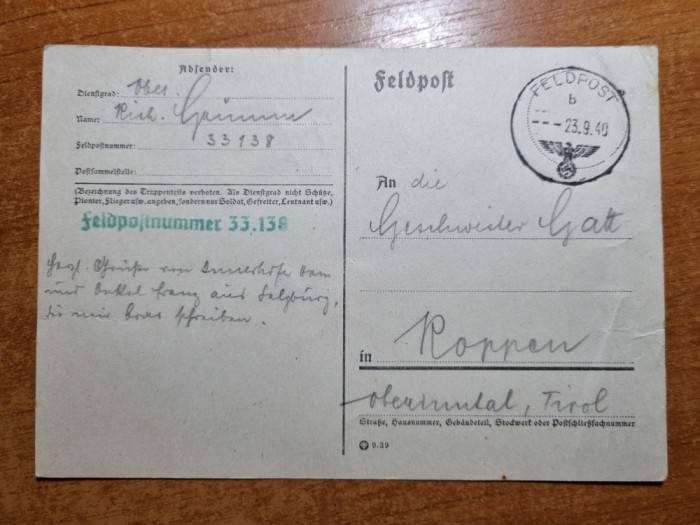 Absender:
Dienstgrad: Ober.
Name: Rich.
Feldpostnummer: 33138
Postsammelstelle:
(Bezeichnung des Truppenteils verboten. Als Dienstgrad nicht Schütze,
Pionier, Flieger usw. angeben, sondern nur Soldat, Gefreiter, Leutnant usw.)
Feldpostnummer 33.138
Herzl. Grüße von
und Onkel Franz aus Salzburg,
die mir schreiben.
Feldpost
FELDPOST
b
23.9.40
An die
Geschwister Gatt
in Roppen
Oberinntal, Tirol
Straße, Hausnummer, Gebäudeteil, Stockwerk oder Postschließfachnummer
9.39